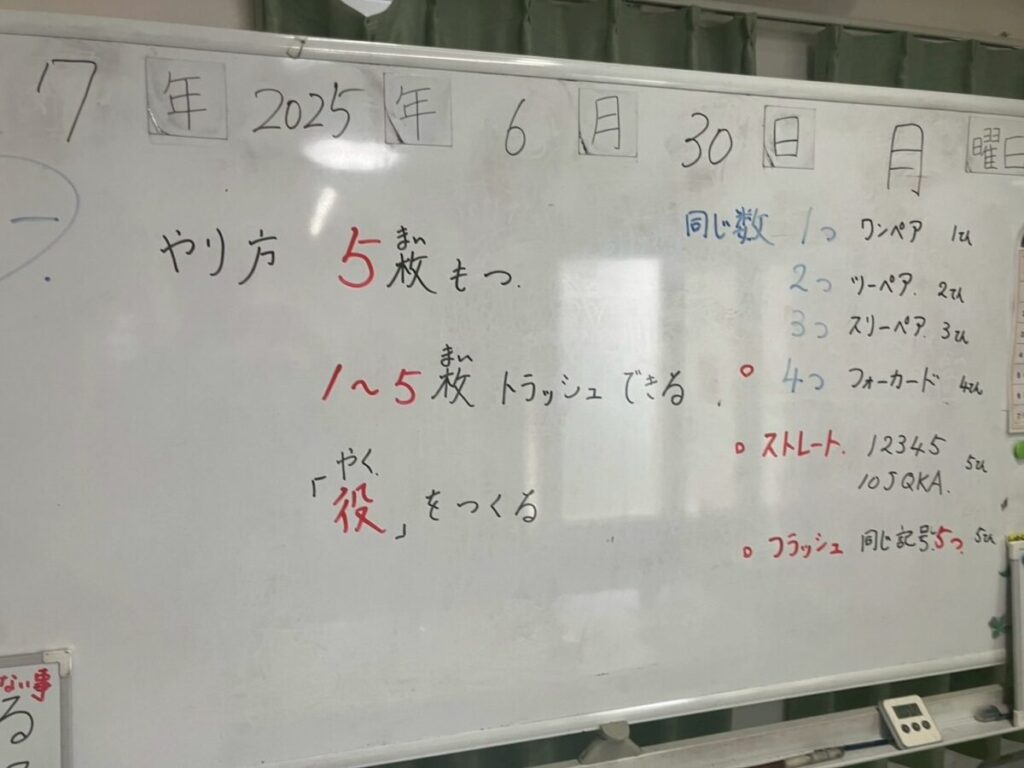 7年 2025年 6月 30日 月曜日
やり方 5枚もつ.
まい
1〜5枚トラッシュできる.
まい
「役」をつくる
やく.
同じ数 1つ ワンペア 1てん
2つ ツーペア. 2てん
3つ スリーペア. 3てん
○ 4つ フォーカード 4てん
○ ストレート. 12345
10JQKA.
5てん
○ フラッシュ 同じ記号5つ. 5てん
ない事
る